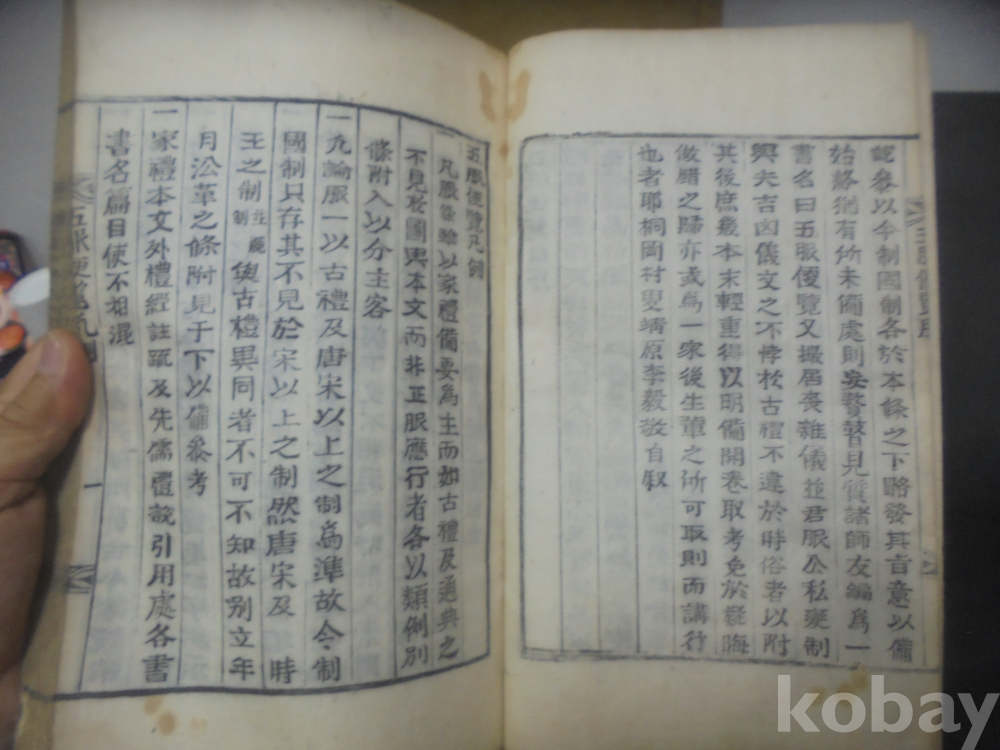 認參以今制國制各於本條之下略發其旨意以備
始終猶有所未備處則妄瞽瞽見質諸師友編為一
書名曰五服便覽又撮居喪雜儀並君服公私變制
與夫吉凶儀文之不悖於古禮不違於時俗者以附
其後庶幾本末輕重得以明備開卷取考免於疑晦
做腊之歸亦或為一家後生輩之所可取則而講行
也者耶桐岡村叟靖原李毅敬自叙
五服便覽凡例
一凡服 雖以家禮備要為主而如古禮及通典之
不見於圖與本文而非正服應行者各以類例別
條附入以分主客
一凡論服一以古禮及唐宋以上之制為準故今制
國制只存其不見於宋以上之制然唐宋及 時
王之制 制 與古禮異同者不可不知故別立年
月沿革之條附見于下以備參考
一家禮本文外禮經註疏及先儒禮說引用處各書
書名篇目使不相混
五服便覽凡例
一
kobay